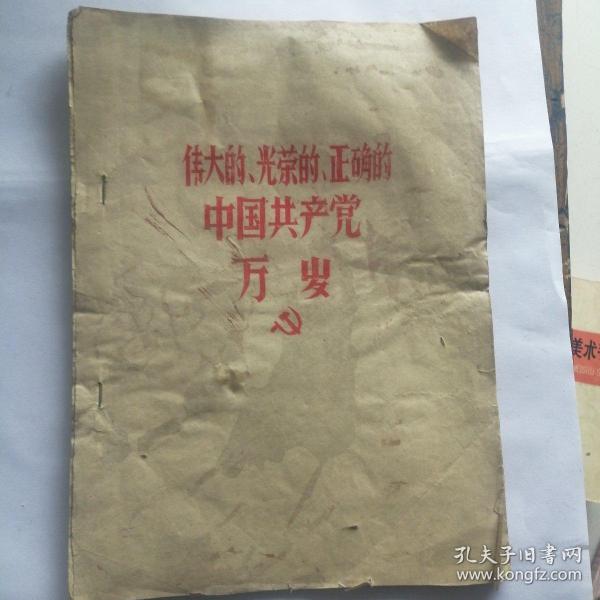 伟大的、光荣的、正确的
中国共产党
万岁
美术
孔夫子旧書网
www.kongfz.com